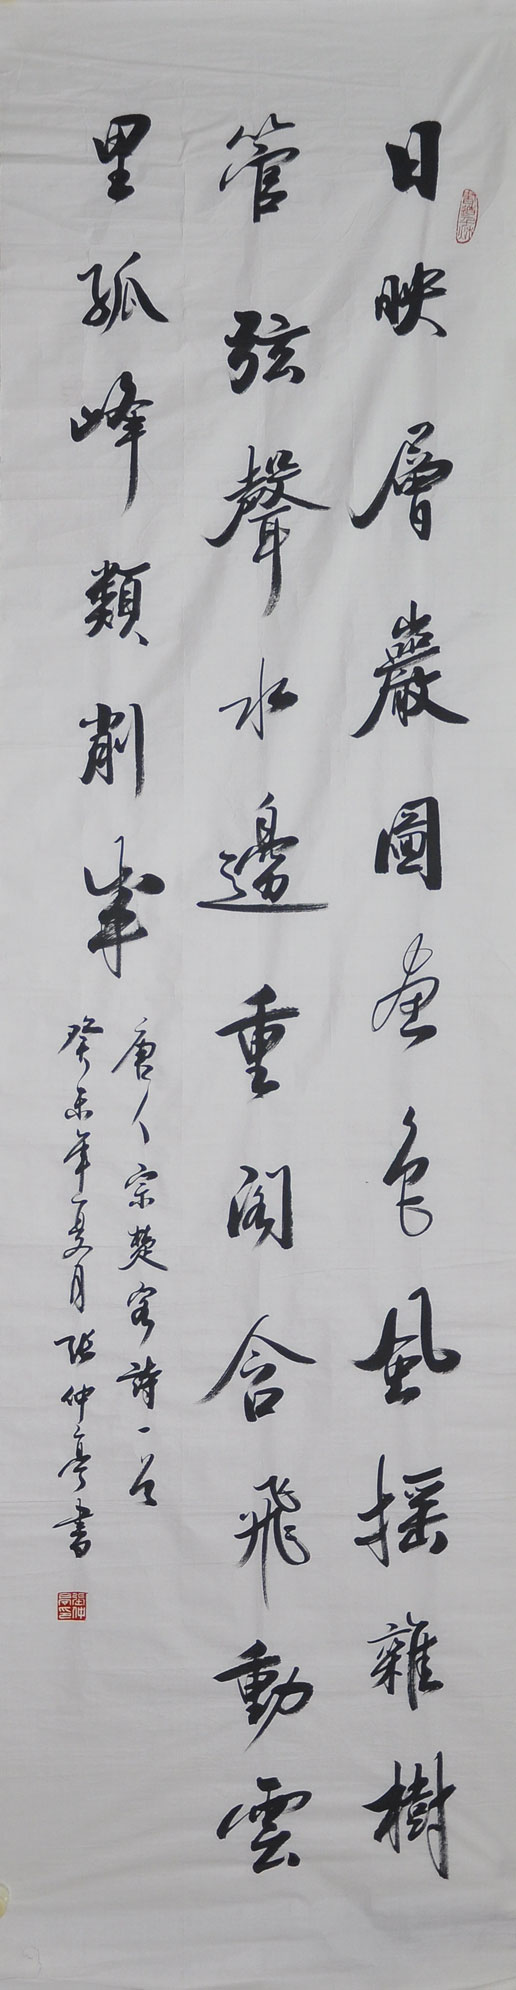 日映層巖圖畫色風摇雜樹
管弦聲水邊重閣含飛動雲
里孤峰類削成
唐人宗楚客詩一首
癸未年夏月張仲亭書
張仲亭印